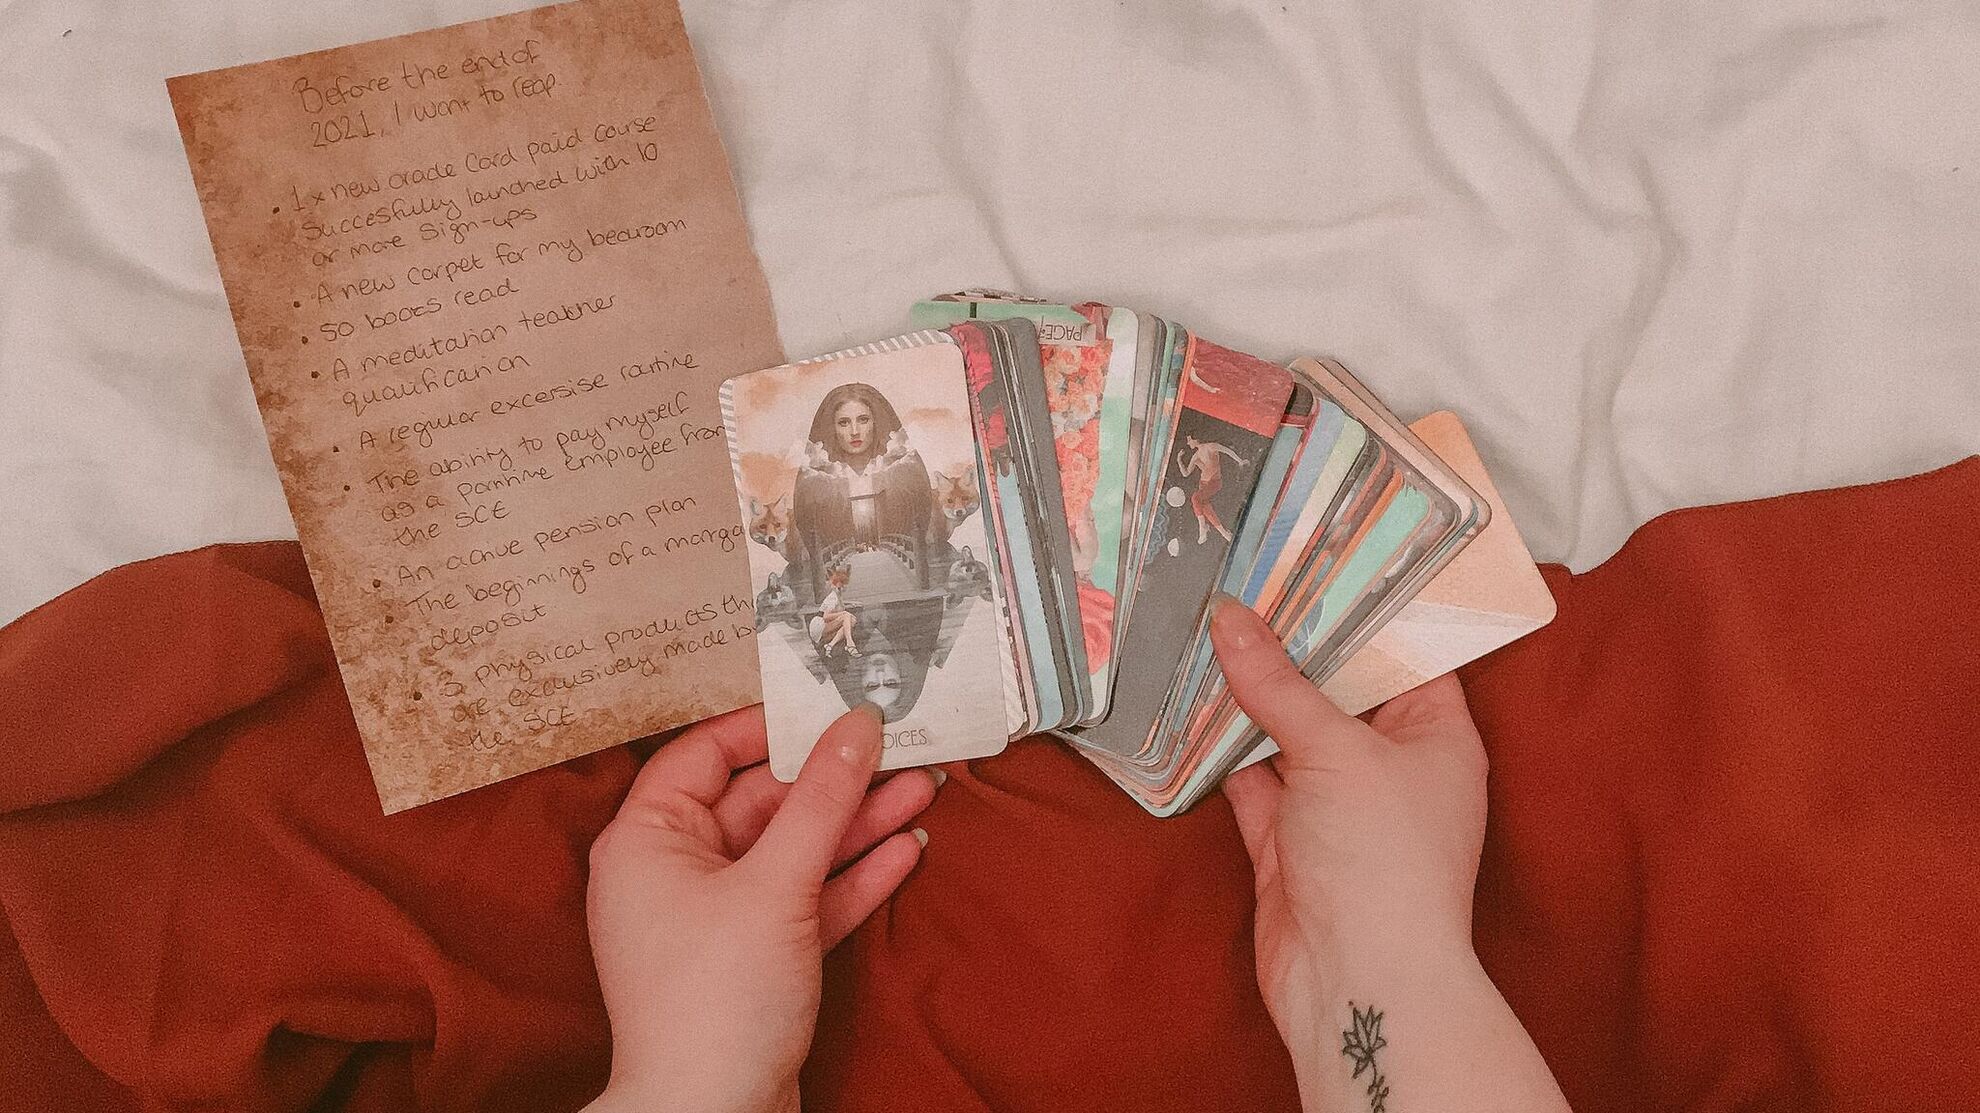 Before the end of
2021, I want to reap.
• 1 x new oracle Card paid course
succesfully launched with 10
or more sign-ups
• A new carpet for my bedroom
• 50 books read
• A meditation teacher
qualification
• A regular excersise routine
• The ability to pay myself
as a partime employee from
the SCE
• An active pension plan
• The beginnings of a
deposit
• 3 physical products
are exclusively made
the SCE
PAGE
OICES